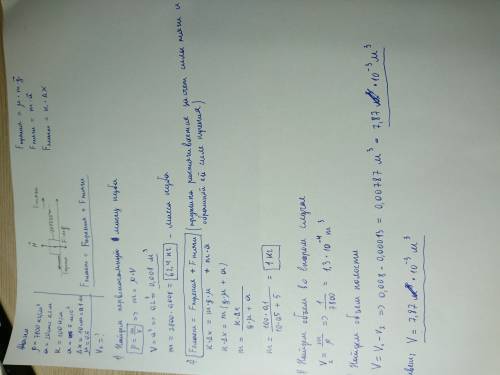 Дано
ρ = 7800 кг/м³
a = 20см = 0,2м
k = 100 н/м
a = 5 м/с²
Δx = 10 см = 0,1 м
μ = 0,5
V₂ = ?
N
Fтрения
Fтяги
F=mg
Fтрения = μ · m g
Fтяги = m · a
Fпружин = k · Δx
Fпружин = Fтрения + Fтяги
1) Найдем первоначальную массу куба
ρ = m/V => m = ρ · V
V = a³ = 0,2³ = 0,008 м³
m = 7800 · 0,008 = 62,4 кг - масса куба
2) Fпружин = Fтрения + Fтяги (пружина растягивается за счет силы тяги и
обратной ей силе трения)
k · Δx = m g · μ + m · a
k · Δx = m (g · μ + a)
m = k · Δx / g · μ + a
m = 100 · 0,1 / 10 · 0,5 + 5 = 1 кг
3) Найдем объем во втором случае
V₂ = m/ρ => 1/7800 = 1,3 · 10⁻⁴ м³
Найдем объем полости
V = V₁ - V₂ => 0,008 - 0,00013 = 0,00787 м³ = 7,87 · 10⁻³ м³
Ответ: V = 7,87 · 10⁻³ м³